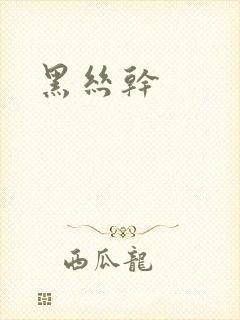 黑絲幹
西瓜龍